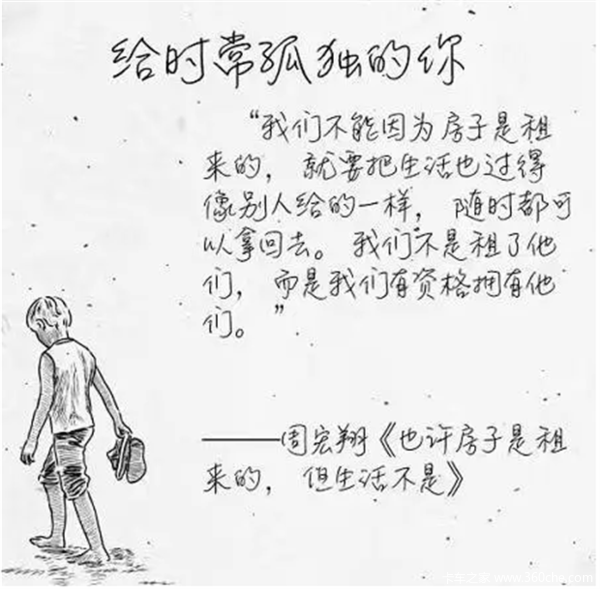 给时常孤独的你
“我们不能因为房子是租
来的，就要把生活也过得
像别人给的一样，随时都可
以拿回去。我们不是租了他
们，而是我们有资格拥有他
们。”
——周宏翔《也许房子是租
来的，但生活不是》
卡车之家 www.360che.com